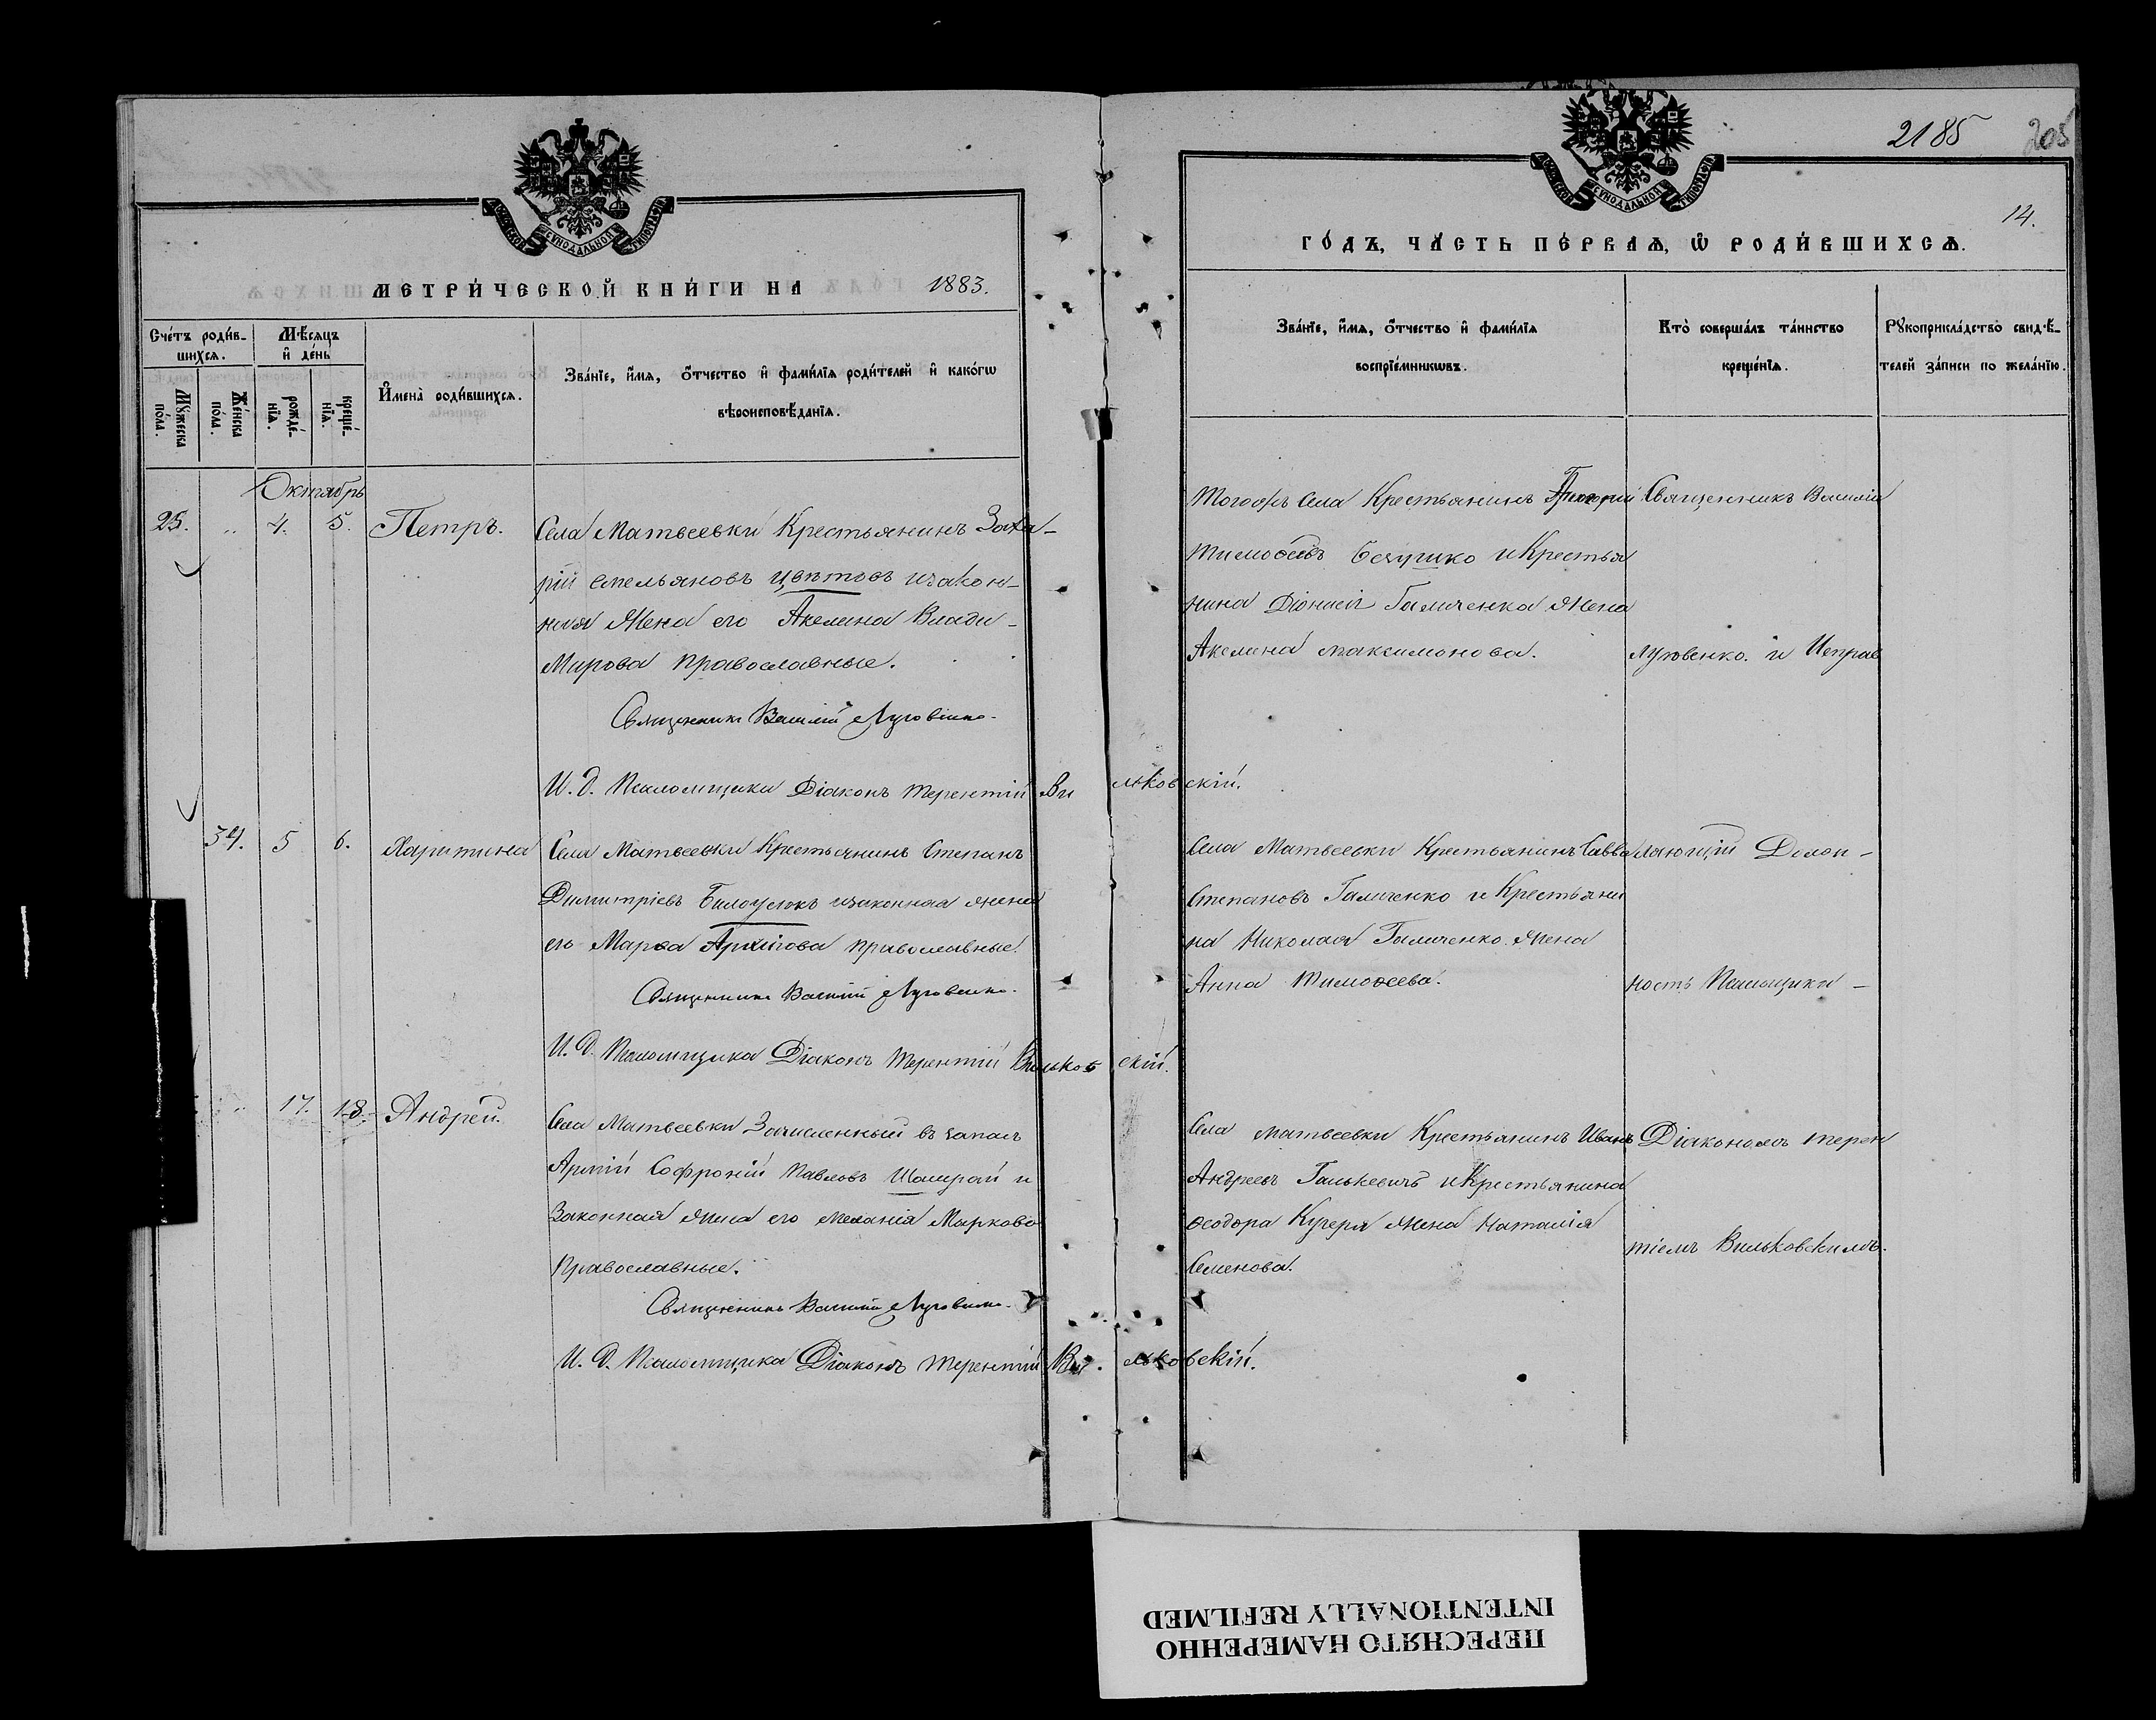 2185
205
14.
МЕТРИ́ЧЕСКОЙ КНИ́ГИ НА 1883.
ГО́ДЪ, ЧА́СТЬ ПЕ́РВАѦ, Ѿ РОДИ́ВШИХСѦ.
Сче́тъ роди́в-
шихсѧ.
Мѣ́сѧцъ
и҆ де́нь
Мꙋ́жеска по́ла.
Же́нска по́ла.
рожде́-
нїѧ.
креще́-
нїѧ.
И҆мена̀ роди́вшихсѧ.
Зва́нїе, и҆́мѧ, ѻ҆́тчество и҆ фами́лїѧ роди́телей и҆ како́гѡ
вѣроисповѣ́данїѧ.
Зва́нїе, и҆́мѧ, ѻ҆́тчество и҆ фами́лїѧ
воспрїе́мникѡвъ.
Кто̀ соверша́лъ та́инство
креще́нїѧ.
Рꙋкоприкла́дство свидѣ́-
телей за́писи по жела́нїю.
Октябрь
25. „ 4. 5. Петръ.
Села Матвеевки Крестьянинъ Заха-
рій Емельяновъ Цвѣтовъ изакон-
ная Жена его Акелина Влади-
Мирова православные.
Священникъ Василій Луговенко.
И. д. Псаломщика Діаконъ Терентій Вильковскій.
Тогожъ Села Крестьянинъ
Тимофеевъ и Крестья
нина Діонисія Галиченка Жена
Акелина Максимонова.
Священникъ Василій
Луговенко. и Исправ
34. 5 6. Харитина
Села Матвеевки Крестьянинъ Степанъ
Димитріевъ Билоусокъ изаконная жена
его Марѳа Архипова православные.
Священникъ Василій Луговенко.
И. д. Псаломщика Діаконъ Терентій Вильковскій.
Села Матвеевки Крестьянинъ Савва
Степановъ Галиченко и Крестьяни
на Николая Галиченко Жена
Анна Тимоѳеева.
ляющій Долж-
ность Псаломщика -
„ 17. 18. Андрей.
Села Матвеевки Зачисленный въ запасъ
Арміи Софроній Павловъ Шамрай и
Законная жена его Меланія Маркова
Православные.
Священникъ Василій Луговенко.
И. д. Псаломщика Діаконъ Терентій Вильковскій.
Села Матвеевки Крестьянинъ Иванъ
Андреевъ Галькевичъ и Крестьянина
Ѳеодора Кучеря Жена Наталія
Семенова.
Діакономъ Терен
тіемъ Вильковскимъ.
ПЕРЕСНЯТО НАМЕРЕННО
INTENTIONALLY REFILMED